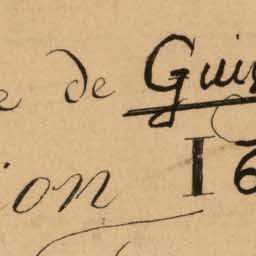 e de Gui
ion 16